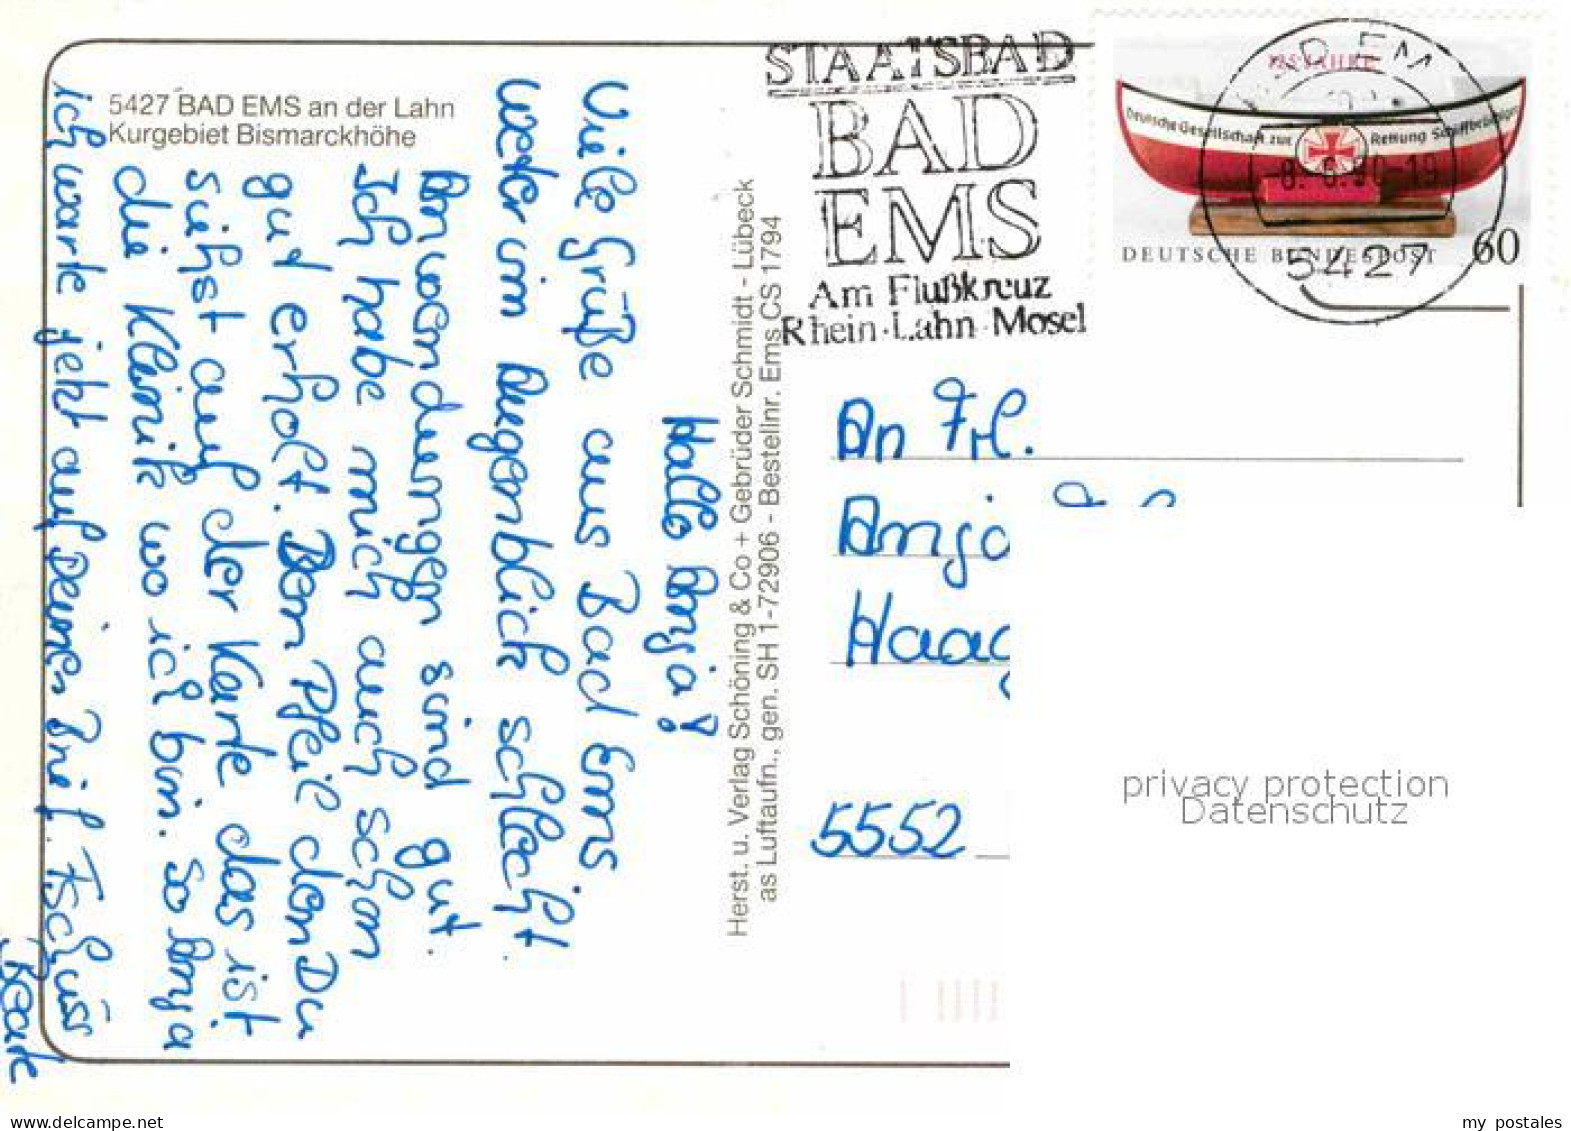 5427 BAD EMS an der Lahn
Kurgebiet Bismarckhöhe
Hallo Anja!
Viele Grüße aus Bad Ems
Wetter im Augenblick schlecht.
Anwendungen sind gut.
Ich habe mich auch schon
gut erholt. Den Pfeil den Du
siehst auf der Karte das ist
die Klinik wo ich bin. So Anja
ich warte jetzt auf Deinen Brief. Tschüss
Herst. u. Verlag Schöning & Co + Gebrüder Schmidt - Lübeck
as Luftaufn., gen. SH 1-72906 - Bestellnr. Ems CS 1794
STAATSBAD
BAD
EMS
Am Flußkreuz
Rhein·Lahn·Mosel
125 JAHRE
Deutsche Gesellschaft zur Rettung Schiffbrüchiger
DEUTSCHE BUNDESPOST 60
BAD EMS
-8.-6.90-19
5427
An Frl.
Anja
Haag
5552
privacy protection
Datenschutz
my_postales
www.delcampe.net